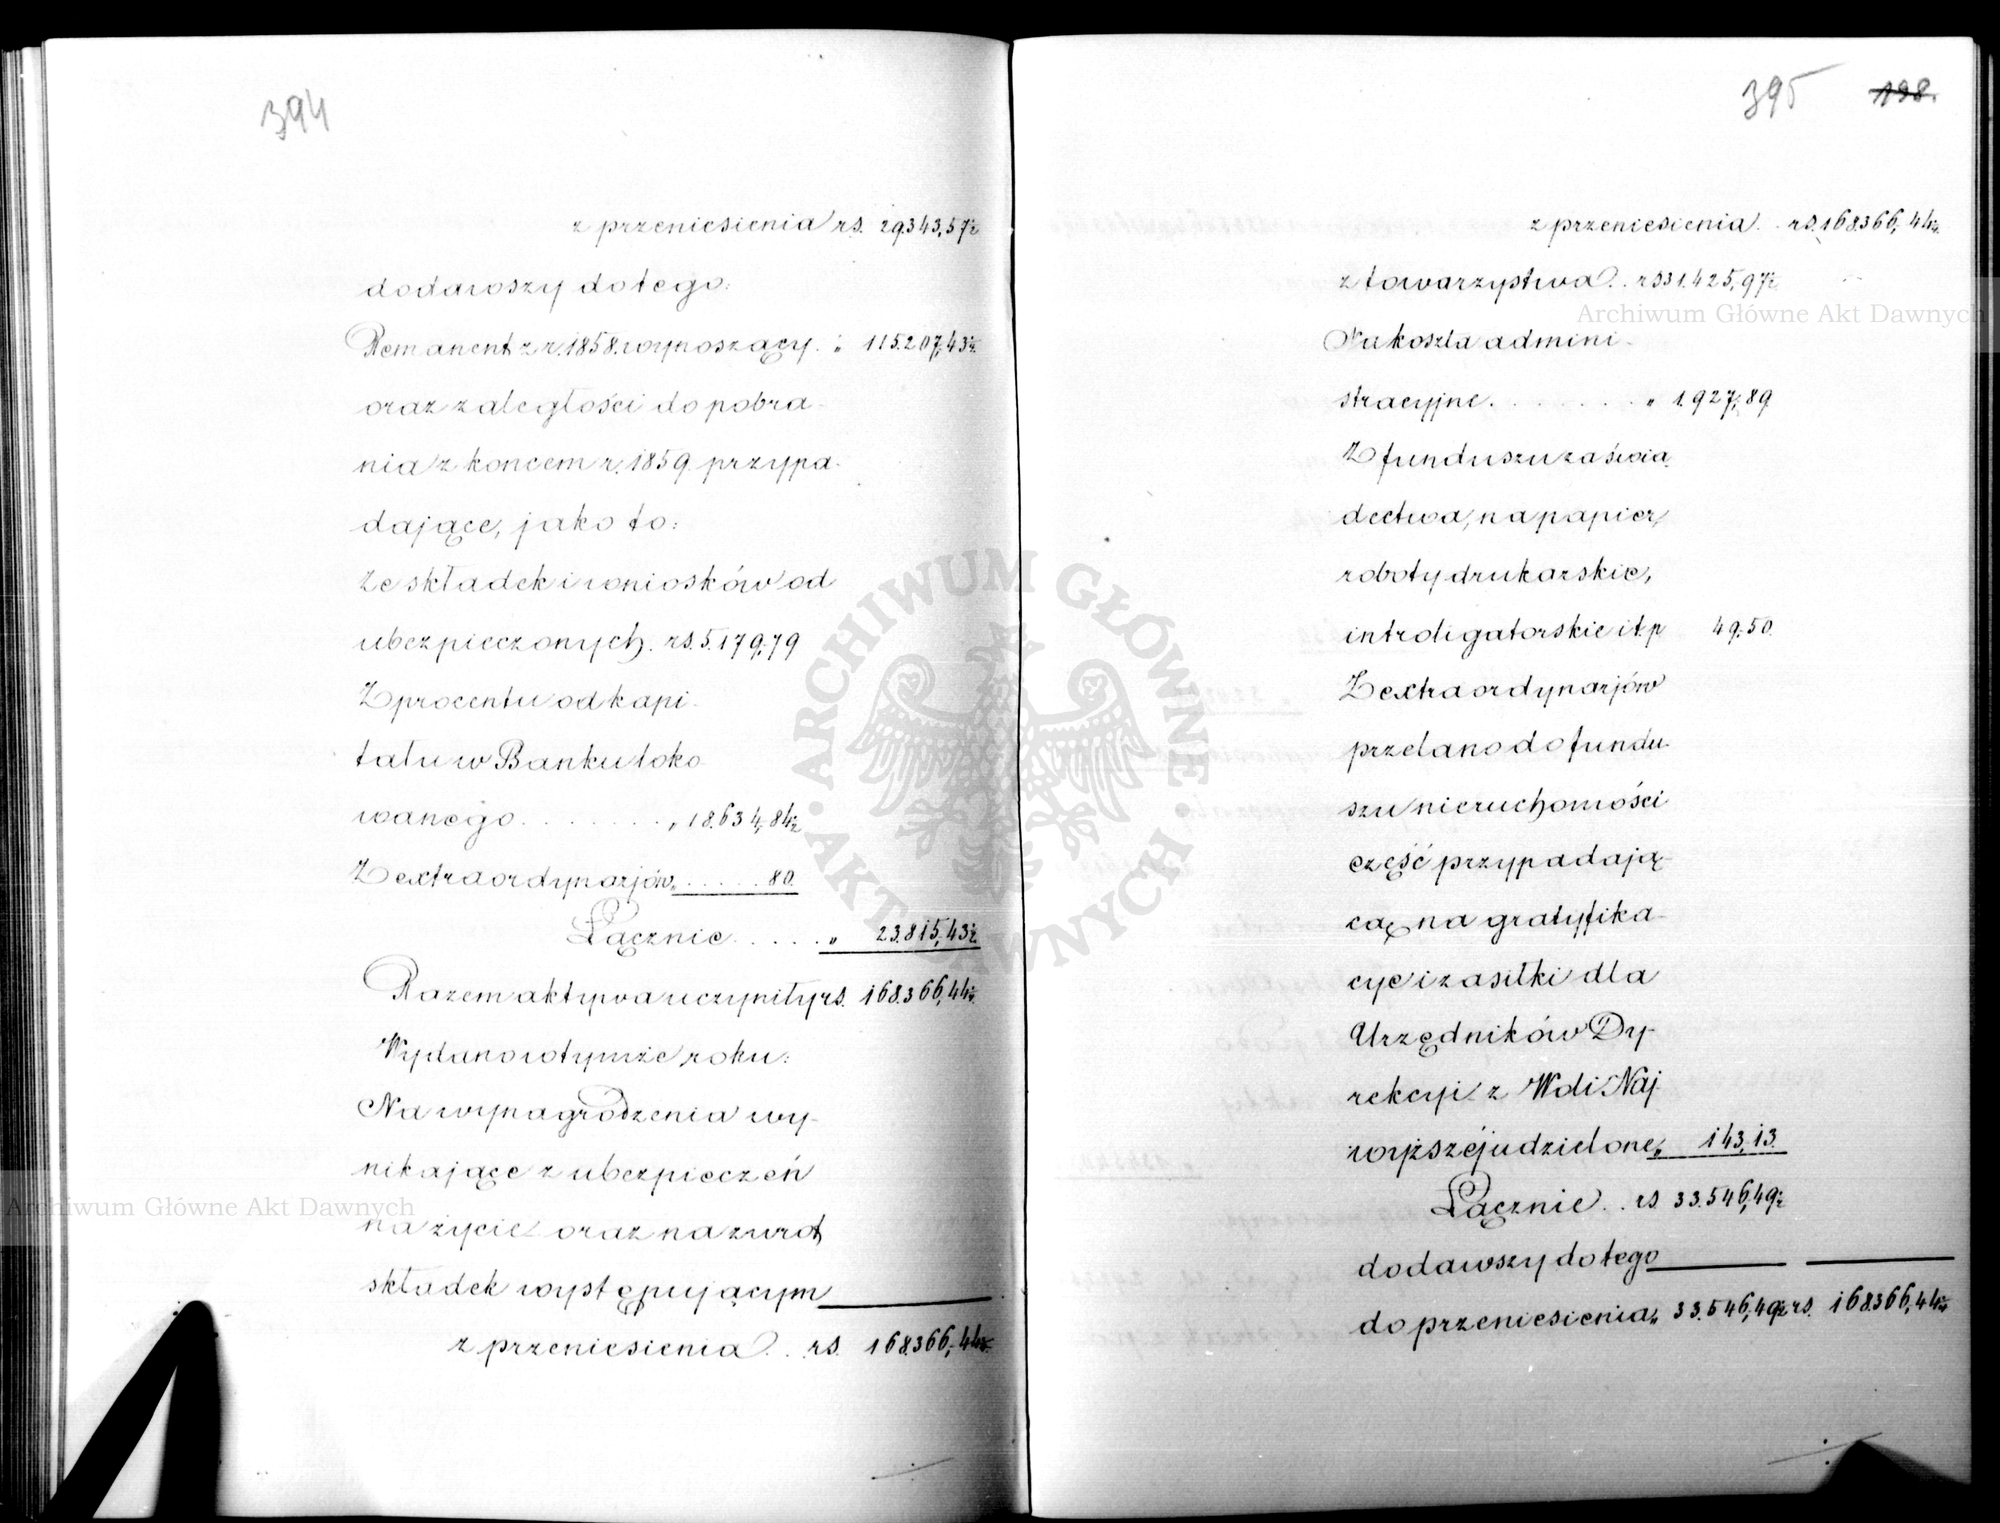 394
z przeniesienia rs. 29.343,57½
dodawszy do tego:
Remanent z r. 1858. wynoszący. „ 115.207,43½.
oraz zaległości do pobra-
nia z koncem r. 1859 przypa-
dające, jako to:
Ze składek i wniosków od
ubezpieczonych. rs. 5.179,79
Z procentu od kapi-
tału w Banku loko
wanego . . . . . . . „ 18.634,84½
Z extraordynarjów „ . . . . . 80.
Łącznie . . . . . „ 23.815,43½.
Razem aktywa uczyniły rs. 168.366,44½.
Wydano w tymże roku:
Na wynagrodzenia wy-
nikające z ubezpieczeń
na życie oraz na zwrot
składek występującym
z przeniesienia . . rs. 168.366,44½.
395 198.
z przeniesienia . . rs. 168.366,44½.
z towarzystwa . . rs 31.425,97½
Na koszta admini-
stracyjne . . . . . . . „ 1.927,89
Z funduszu za świa-
dectwa, na papier,
roboty drukarskie,
introligatorskie i t. p 49,50.
Z extraordynarjów
przelano do fundu-
szu nieruchomości
część przypadają-
cą na gratyfika-
cye i zasiłki dla
Urzędników Dy-
rekcyi z Woli Naj
wyższéj udzielone „ 143,13.
Łącznie . . rs. 33.546,49½
dodawszy do tego
do przeniesienia „ 33.546,49½ rs. 168.366,44½
Archiwum Główne Akt Dawnych
Archiwum Główne Akt Dawnych
ARCHIWUM GŁÓWNE AKT DAWNYCH